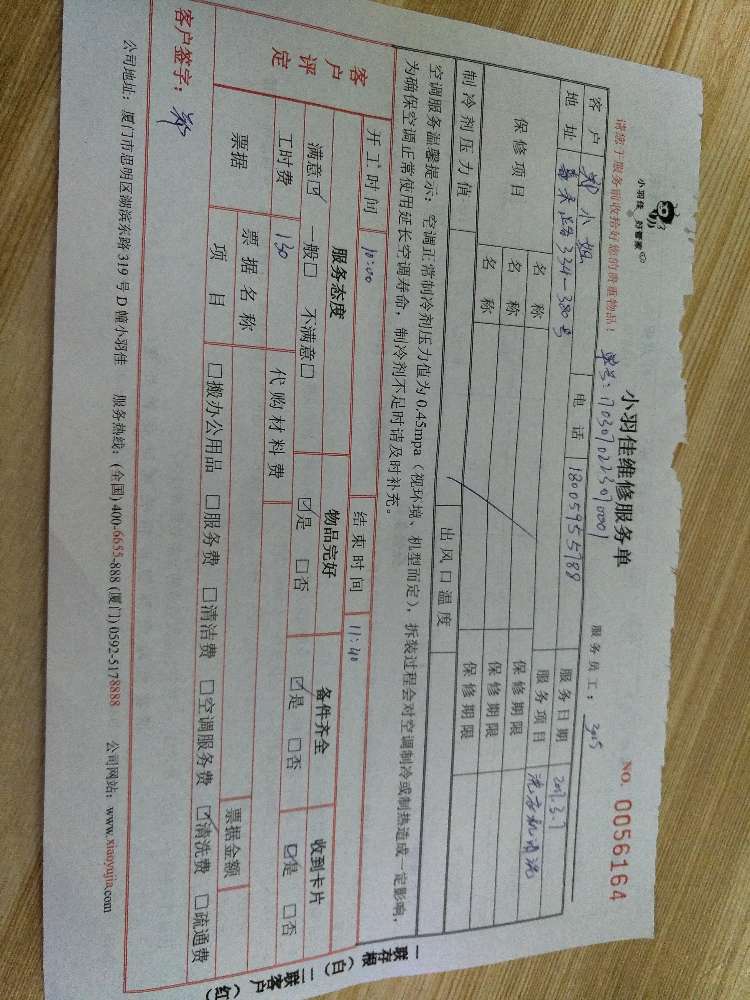 小羽佳 好管家
小羽佳维修服务单
NO. 0056164
请您于服务前收拾好您的贵重物品!
单号:17030702230700001
服务员工: 3205
客户 郑小姐 电话 18005955788 服务日期 2017.3.7
地址 莆天路334-380号 服务项目 洗衣机清洗
保修项目 名称 保修期限
名称 保修期限
名称 保修期限
制冷剂压力值 出风口温度
空调服务温馨提示:空调正常制冷剂压力值为0.45mpa(视环境、机型而定),拆装过程会对空调制冷或制热造成一定影响,
为确保空调正常使用延长空调寿命,制冷剂不足时请及时补充。
开工时间 10:00 结束时间 11:40
客户评定 服务态度 物品完好 备件齐全 收到卡片
满意☑ 一般☐ 不满意☐ ☑是 ☐否 ☑是 ☐否 ☑是 ☐否
工时费 130 代购材料费
票据 票据名称 票据金额
项目 ☐搬办公用品 ☐服务费 ☐清洁费 ☐空调服务费 ☑清洗费 ☐疏通费
客户签字: 郑
公司地址:厦门市思明区湖滨东路319号D幢小羽佳 服务热线:(全国)400-6655-888 (厦门)0592-5178888 公司网站:www.xiaoyujia.com
一联存根(白) 二联客户(红)